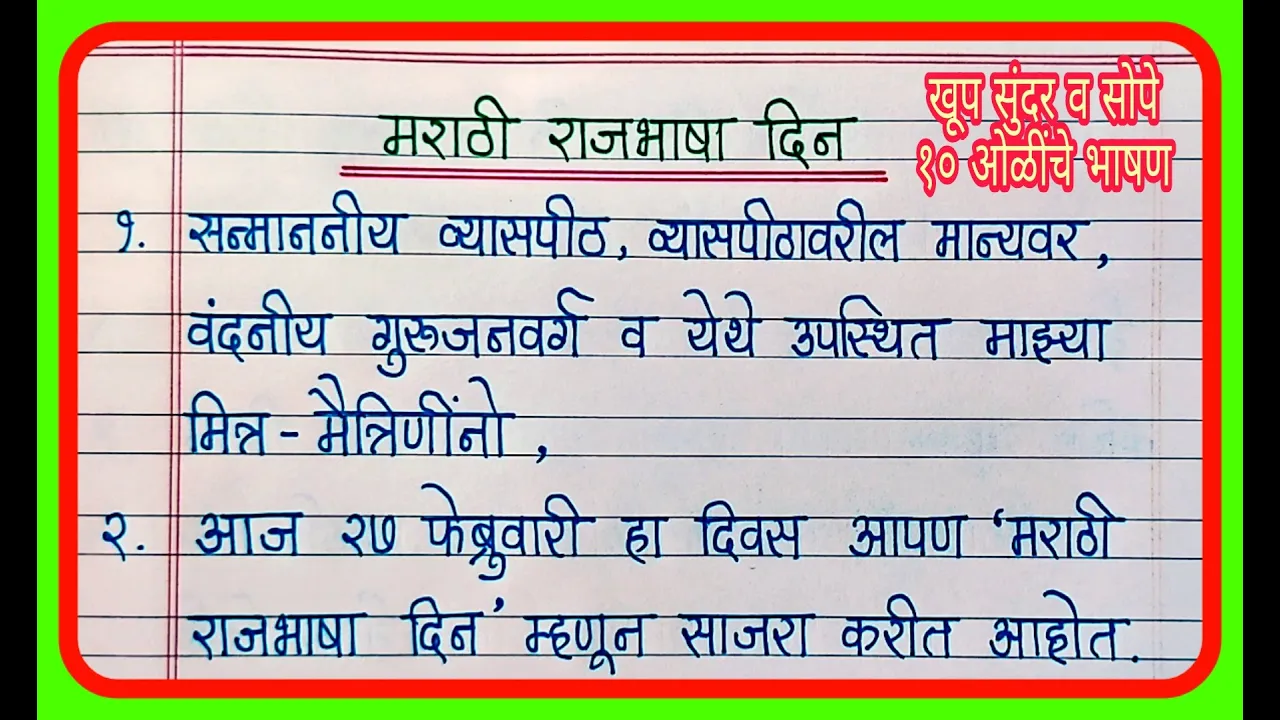 मराठी राजभाषा दिन
खूप सुंदर व सोपे
१० ओळींचे भाषण
१. सन्माननीय व्यासपीठ, व्यासपीठावरील मान्यवर,
वंदनीय गुरुजनवर्ग व येथे उपस्थित माझ्या
मित्र - मैत्रिणींनो,
२. आज २७ फेब्रुवारी हा दिवस आपण 'मराठी
राजभाषा दिन' म्हणून साजरा करीत आहोत.